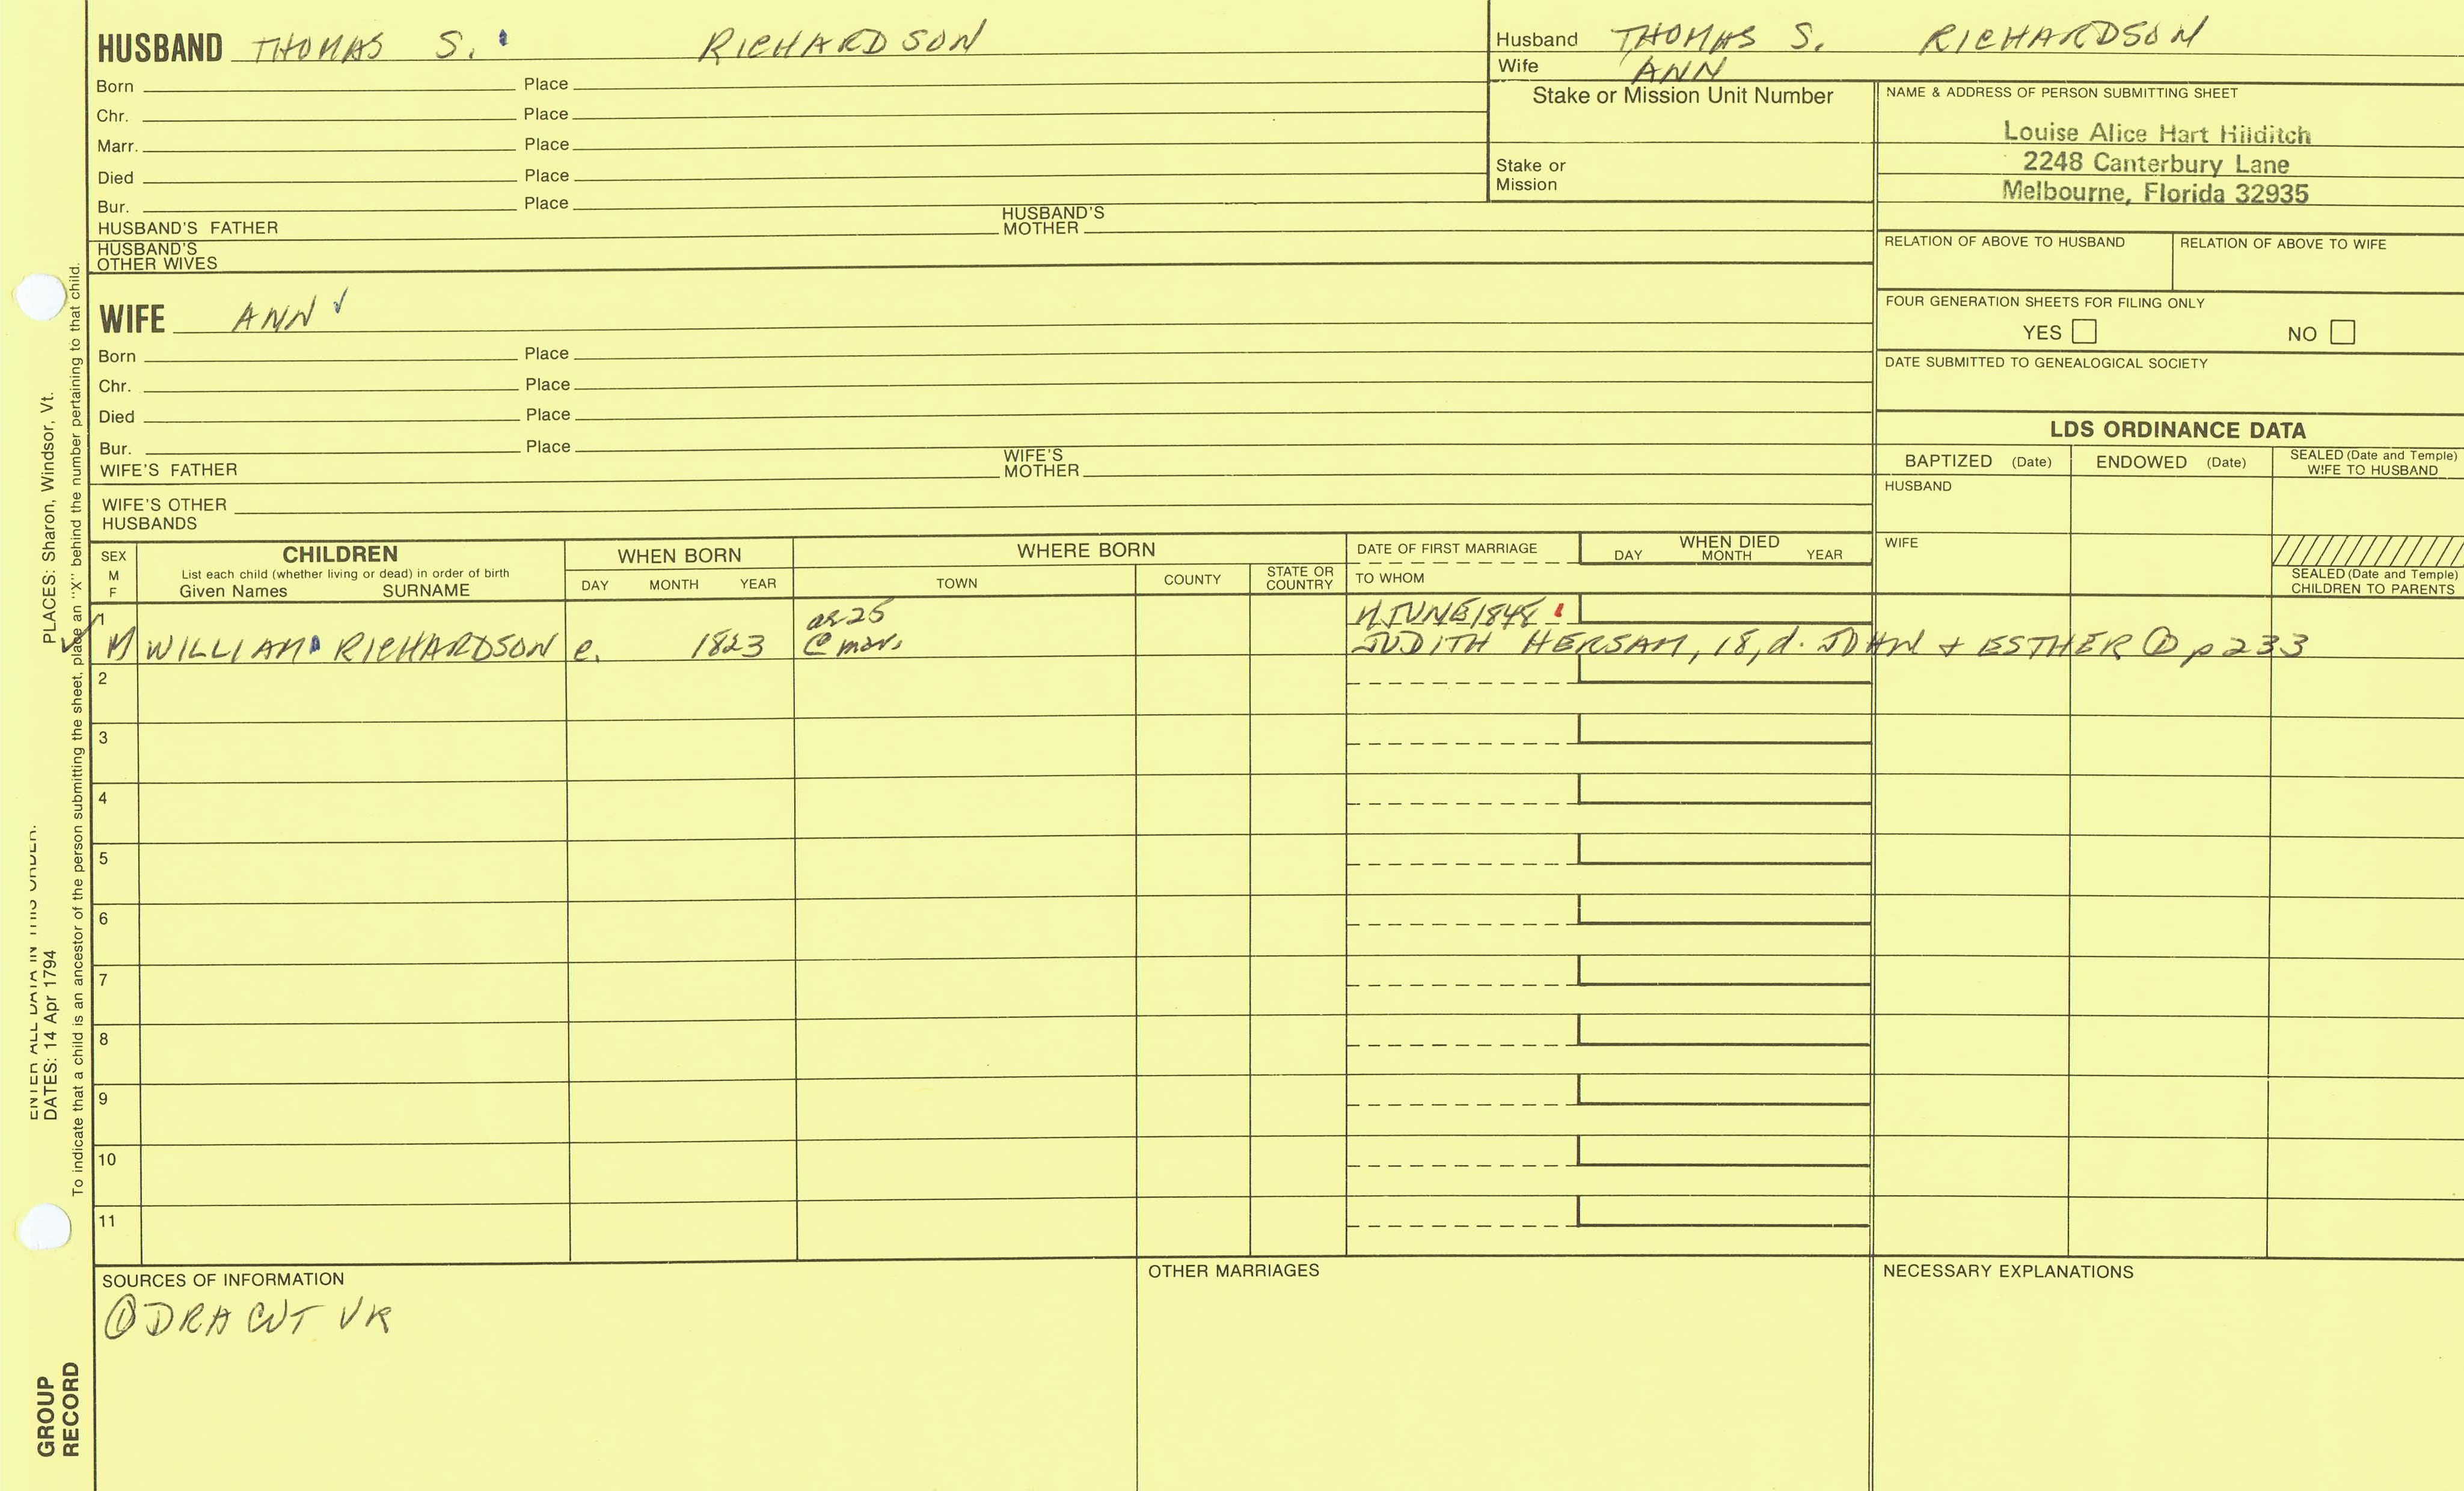 HUSBAND THOMAS S. RICHARDSON
Born Place
Chr. Place
Marr. Place
Died Place
Bur. Place
HUSBAND'S FATHER HUSBAND'S MOTHER
HUSBAND'S OTHER WIVES
Husband THOMAS S. RICHARDSON
Wife ANN
Stake or Mission Unit Number
Stake or
Mission
NAME & ADDRESS OF PERSON SUBMITTING SHEET
Louise Alice Hart Hilditch
2248 Canterbury Lane
Melbourne, Florida 32935
RELATION OF ABOVE TO HUSBAND RELATION OF ABOVE TO WIFE
FOUR GENERATION SHEETS FOR FILING ONLY
YES NO
DATE SUBMITTED TO GENEALOGICAL SOCIETY
WIFE ANN ✓
Born Place
Chr. Place
Died Place
Bur. Place
WIFE'S FATHER WIFE'S MOTHER
WIFE'S OTHER
HUSBANDS
LDS ORDINANCE DATA
BAPTIZED (Date) ENDOWED (Date) SEALED (Date and Temple) WIFE TO HUSBAND
HUSBAND
WIFE
SEALED (Date and Temple)
CHILDREN TO PARENTS
SEX
M
F
CHILDREN
List each child (whether living or dead) in order of birth
Given Names SURNAME
WHEN BORN
DAY MONTH YEAR
WHERE BORN
TOWN COUNTY STATE OR COUNTRY
DATE OF FIRST MARRIAGE
TO WHOM
WHEN DIED
DAY MONTH YEAR
1 25 JUNE 1848
M WILLIAM RICHARDSON e. 1823 @ mar. JUDITH HERSAM, 18, d. JOHN + ESTHER ① p233
2
3
4
5
6
7
8
9
10
11
SOURCES OF INFORMATION
① DRACUT VR
OTHER MARRIAGES
NECESSARY EXPLANATIONS
ENTER ALL DATA IN THIS ORDER.
DATES: 14 Apr 1794 PLACES: Sharon, Windsor, Vt.
To indicate that a child is an ancestor of the person submitting the sheet, place an "X" behind the number pertaining to that child.
GROUP
RECORD